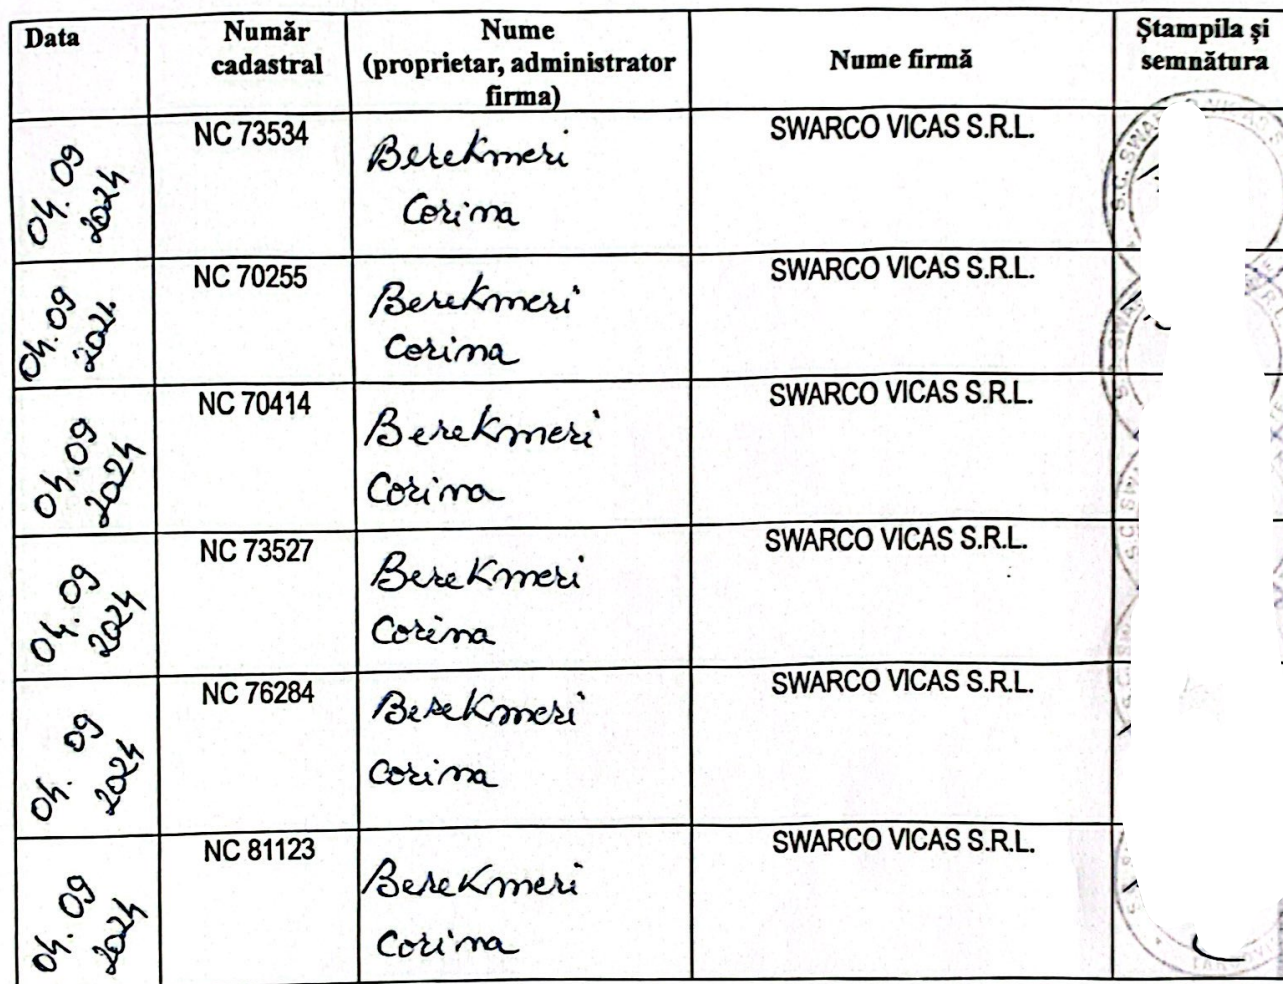 Data
Număr
cadastral
Nume
(proprietar, administrator
firma)
Nume firmă
Ștampila și
semnătura
04.09
2024
NC 73534
Berekmeri
Corina
SWARCO VICAS S.R.L.
S.C. SWA
04.09
2024
NC 70255
Berekmeri
Corina
SWARCO VICAS S.R.L.
04.09
2024
NC 70414
Berekmeri
Corina
SWARCO VICAS S.R.L.
04.09
2024
NC 73527
Berekmeri
Corina
SWARCO VICAS S.R.L.
04.09
2024
NC 76284
Berekmeri
Corina
SWARCO VICAS S.R.L.
04.09
2024
NC 81123
Berekmeri
Corina
SWARCO VICAS S.R.L.